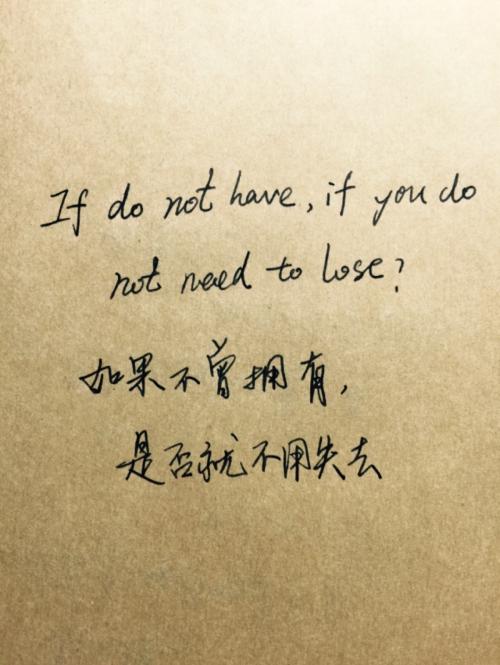 If do not have, if you do
not need to lose?
如果不曾拥有,
是否就不用失去